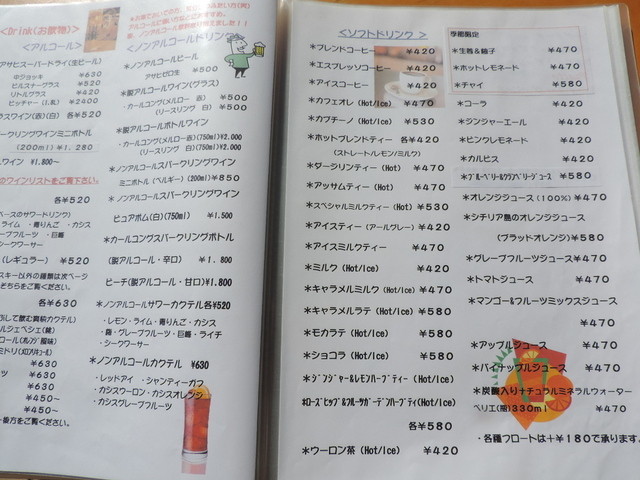 <Drink(お飲物)>
<アルコール>
アサヒスーパードライ(生ビール)
中ジョッキ ¥630
ピルスナーグラス ¥520
リトルグラス ¥420
ピッチャー(1.8L) ¥2400
ラスワイン(赤)(白) 各¥520
ークリングワインミニボトル
(200ml) ¥1.280
ワイン ¥1.800~
のワインリストをご覧下さい。
各¥520
ベースのサワードリンク)
イム ・青りんご ・カシス
レープフルーツ ・巨峰
シークワーサー
(レギュラー) ¥520
スキー以外の種類は次ページ
そちらをご覧ください。
各¥630
¥630
¥630
¥630
¥450~
¥450~
後方をご覧ください。
<ノンアルコールドリンク>
*ノンアルコールビール
アサヒゼロ生 ¥500
*脱アルコールワイン(グラス)
・カールユング(メルロー 赤) ¥500
(リースリング 白) ¥500
*脱アルコールボトルワイン
・カールユング(メルロー赤)(750ml) ¥2.000
(リースリング 白)(750ml) ¥2.000
*ノンアルコールスパークリングワイン
ミニボトル(ベルギー)(200ml) ¥850
*ノンアルコールスパークリングワイン
ピュアポム(白)(750ml) ¥1.500
*カールユングスパークリングボトル
(脱アルコール・辛口) ¥1.800
ピーチ(脱アルコール・甘口)¥1.800
*ノンアルコールサワーカクテル各¥520
・レモン・ライム・青りんご・カシス
・梅・グレープフルーツ・巨峰・ライチ
・シークワーサー
*ノンアルコールカクテル ¥630
・レッドアイ ・シャンティーガフ
・カシスウーロン・カシスオレンジ
・カシスグレープフルーツ
<ソフトドリンク>
*ブレンドコーヒー ¥420
*エスプレッソコーヒー ¥420
*アイスコーヒー ¥420
*カフェオレ(Hot/Ice) ¥470
*カプチーノ(Hot/Ice) ¥530
*ホットブレンドティー 各¥420
(ストレート/レモン/ミルク)
*ダージリンティー(Hot) ¥470
*アッサムティー(Hot) ¥470
*スペシャルミルクティー(Hot) ¥530
*アイスティー(アールグレー) ¥420
*アイスミルクティー ¥470
*ミルク(Hot/Ice) ¥420
*キャラメルミルク(Hot/Ice) ¥470
*キャラメルラテ(Hot/Ice) ¥580
*モカラテ(Hot/Ice) ¥580
*ショコラ(Hot/Ice) ¥580
*ジンジャー&レモンハーブティー(Hot/Ice)
*ローズヒップ&フルーツガーデンハーブティ(Hot/Ice)
各¥580
*ウーロン茶(Hot/Ice) ¥420
季節限定
*生姜&柚子 ¥470
*ホットレモネード ¥470
*チャイ ¥580
*コーラ ¥420
*ジンジャーエール ¥420
*ピンクレモネード ¥420
*カルピス ¥420
*ブルーベリー&クランベリージュース ¥580
*オレンジジュース(100%) ¥470
*シチリア島のオレンジジュース
(ブラッドオレンジ) ¥580
*グレープフルーツジュース ¥470
*トマトジュース ¥470
*マンゴー&フルーツミックスジュース
¥470
*アップルジュース ¥470
*パイナップルジュース ¥470
*炭酸入りナチュラルミネラルウォーター
ペリエ(瓶)330ml ¥470
・各種フロートは+¥180で承ります。